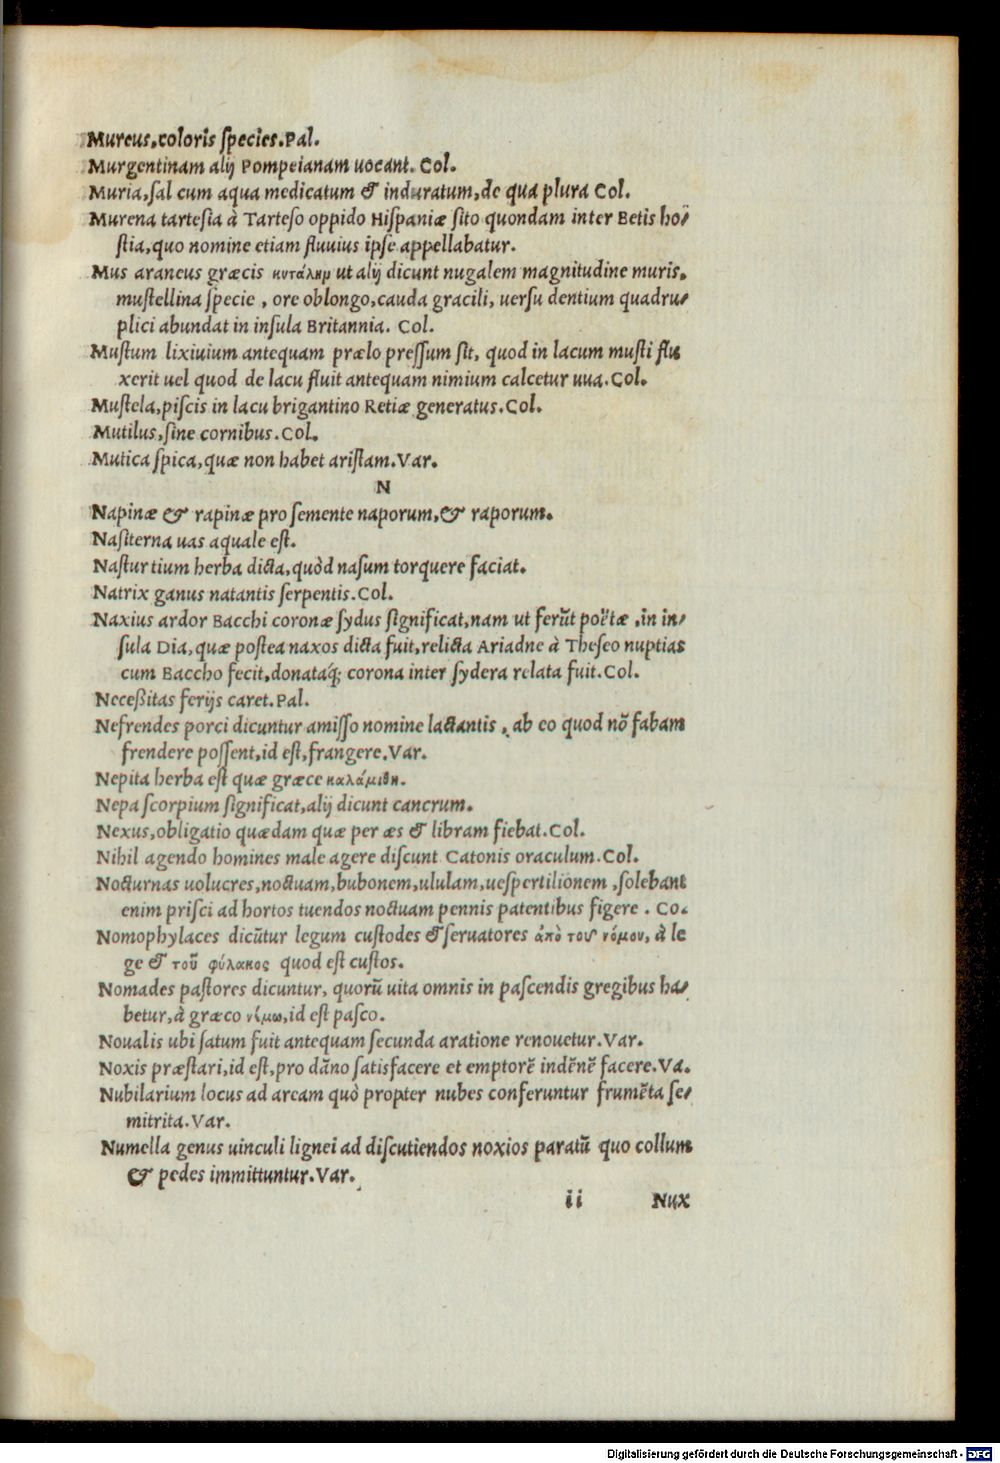 Mureus,coloris ſpecies.Pal.
Murgentinam alij Pompeianam uocant. Col.
Muria,ſal cum aqua medicatum & induratum,de qua plura Col.
Murena tarteſia à Tarteſo oppido Hiſpaniæ ſito quondam inter Betis ho/
ſtia,quo nomine etiam fluuius ipſe appellabatur.
Mus araneus græcis ut alij dicunt nugalem magnitudine muris,
muſtellina ſpecie , ore oblongo,cauda gracili, uerſu dentium quadru/
plici abundat in inſula Britannia. Col.
Muſtum lixiuium antequam prælo preſſum ſit, quod in lacum muſti flu
xerit uel quod de lacu fluit antequam nimium calcetur uua.Col.
Muſtela,piſcis in lacu brigantino Retiæ generatus.Col.
Mutilus,ſine cornibus.Col.
Mutica ſpica,quæ non habet ariſtam.Var.
N
Napinæ & rapinæ pro ſemente naporum,& raporum.
Naſiterna uas aquale eſt.
Naſturtium herba dicta,quòd naſum torquere faciat.
Natrix ganus natantis ſerpentis.Col.
Naxius ardor Bacchi coronæ ſydus ſignificat,nam ut ferūt poëtæ ,in in/
ſula Dia,quæ poſtea naxos dicta fuit,relicta Ariadne à Theſeo nuptias
cum Baccho fecit,donataq́; corona inter ſydera relata fuit.Col.
Neceßitas ferijs caret.Pal.
Nefrendes porci dicuntur amiſſo nomine lactantis , ab eo quod nō fabam
frendere poſſent,id eſt,frangere.Var.
Nepita herba eſt quæ græce καλάμιθη.
Nepa ſcorpium ſignificat,alij dicunt cancrum.
Nexus,obligatio quædam quæ per æs & libram fiebat.Col.
Nihil agendo homines male agere diſcunt Catonis oraculum.Col.
Nocturnas uolucres,noctuam,bubonem,ululam,ueſpertilionem ,ſolebant
enim priſci ad hortos tuendos noctuam pennis patentibus figere . Co.
Nomophylaces dicūtur legum cuſtodes & ſeruatores ἀπὸ τοῦ νόμου, à le
ge & τοῦ φύλακος quod eſt cuſtos.
Nomades paſtores dicuntur, quorū uita omnis in paſcendis gregibus ha/
betur,à græco νέμω,id eſt paſco.
Noualis ubi ſatum fuit antequam ſecunda aratione renouetur.Var.
Noxis præſtari,id eſt,pro dāno ſatisfacere et emptorē indēnē facere.Va.
Nubilarium locus ad aream quò propter nubes conferuntur frumēta ſe/
mitrita.Var.
Numella genus uinculi lignei ad diſcutiendos noxios paratū quo collum
& pedes immittuntur.Var.
ii Nux
Digitalisierung gefördert durch die Deutsche Forschungsgemeinschaft - DFG